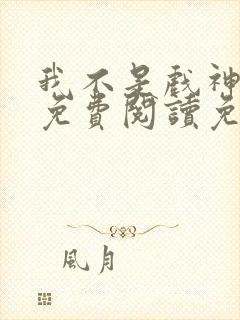 我不是戲神
免費閱讀免
風月